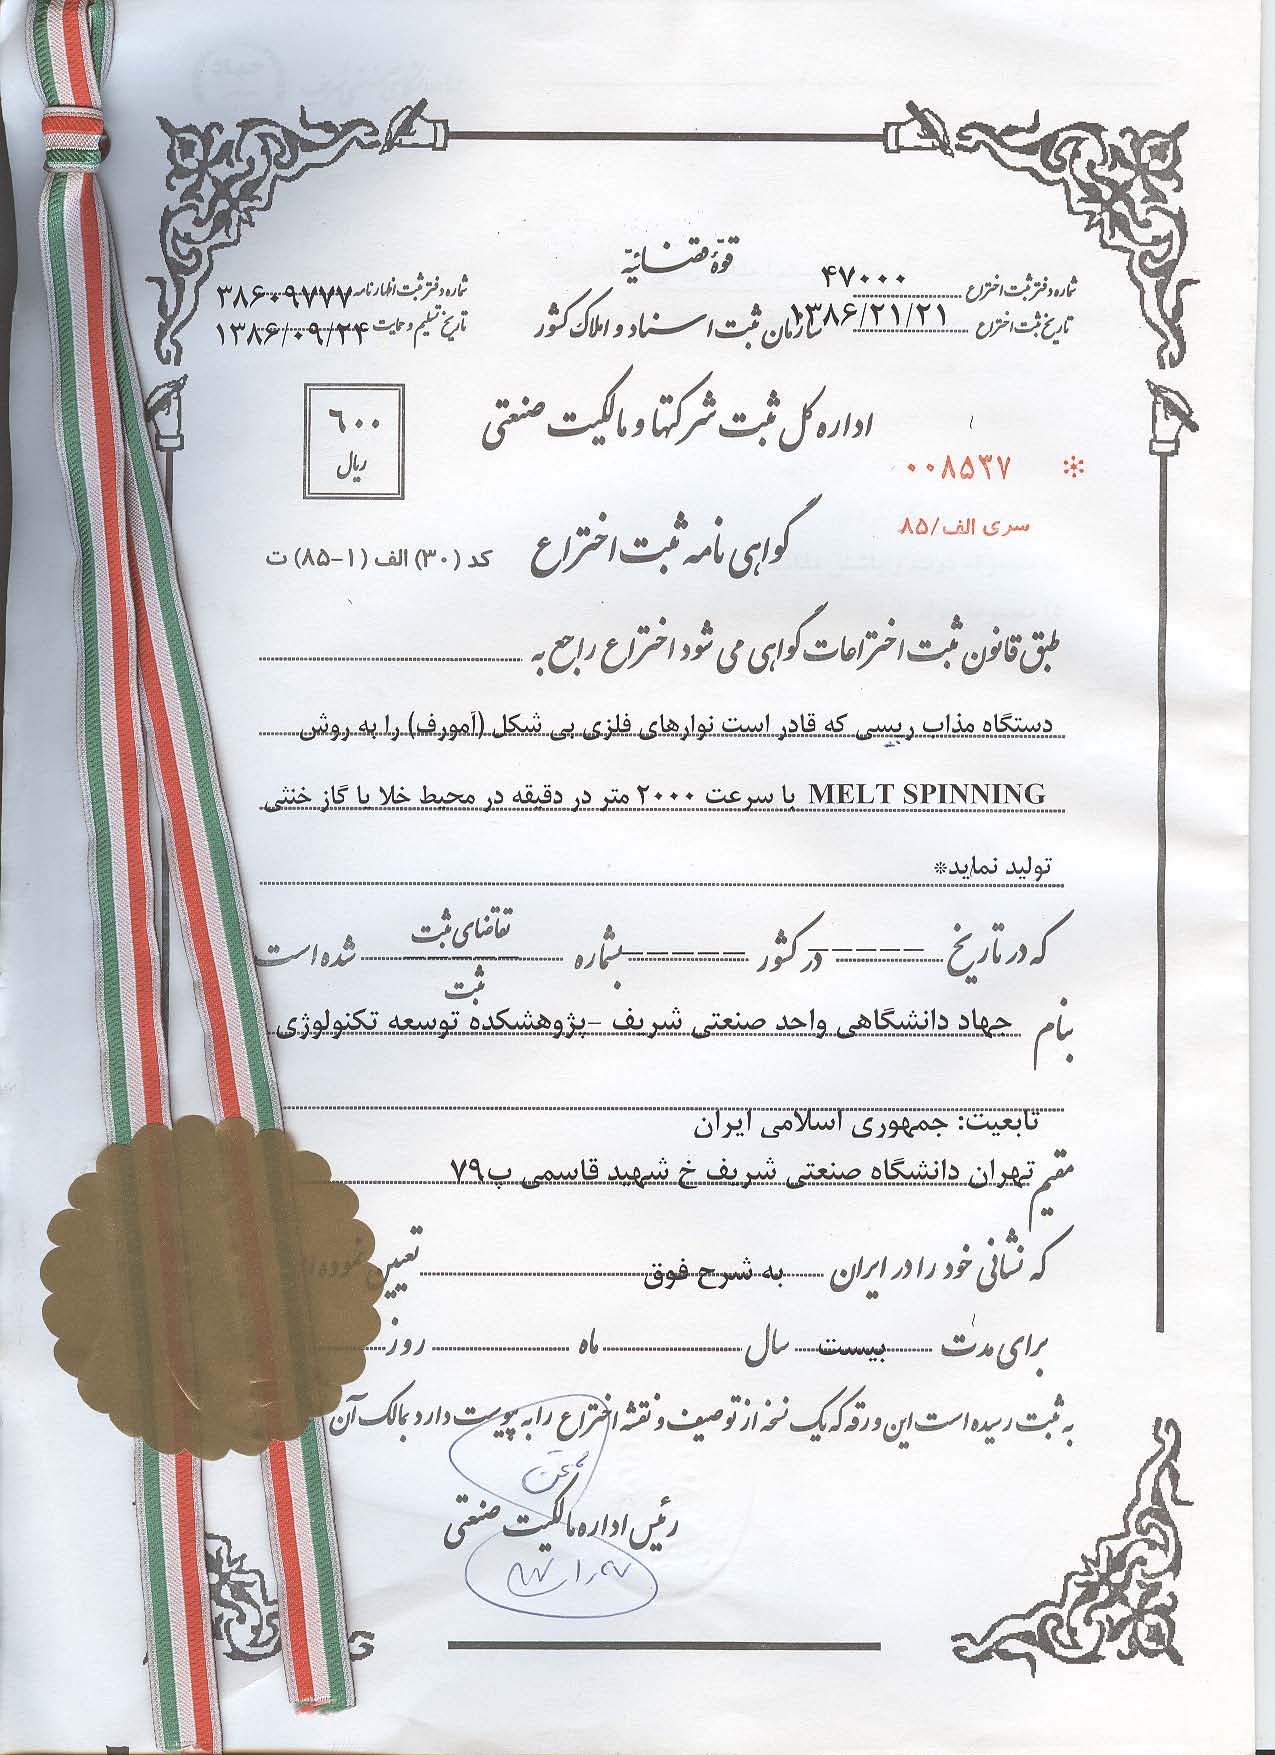 قوّهٔ قضائیّه
شماره دفتر ثبت اختراع ۴۷۰۰۰
شماره دفتر ثبت اظهارنامه ۳۸۶۰۹۷۷۷
سازمان ثبت اسناد و املاک کشور
تاریخ ثبت اختراع ۱۳۸۶/۲۱/۲۱
تاریخ تسلیم و حمایت ۱۳۸۶/۰۹/۲۴
اداره کل ثبت شرکتها و مالکیت صنعتی
۶۰۰
ریال
* ۰۰۸۵۳۷
سری الف/۸۵
گواهی نامه ثبت اختراع
کد (۳۰) الف (۱-۸۵) ت
طبق قانون ثبت اختراعات گواهی می شود اختراع راجع به
دستگاه مذاب ریسی که قادر است نوارهای فلزی بی شکل (آمورف) را به روش
MELT SPINNING با سرعت ۲۰۰۰ متر در دقیقه در محیط خلا یا گاز خنثی
تولید نماید*
که در تاریخ ------ در کشور ------ بشماره تقاضای ثبت شده است
ثبت
بنام جهاد دانشگاهی واحد صنعتی شریف -پژوهشکده توسعه تکنولوژی
تابعیت: جمهوری اسلامی ایران
مقیم تهران دانشگاه صنعتی شریف خ شهید قاسمی پ۷۹
که نشانی خود را در ایران به شرح فوق تعیین نموده
برای مدت بیست سال ماه روز
به ثبت رسیده است این ورقه که یک نسخه از توصیف و نقشه اختراع را به پیوست دارد بمالک آن
رئیس اداره مالکیت صنعتی